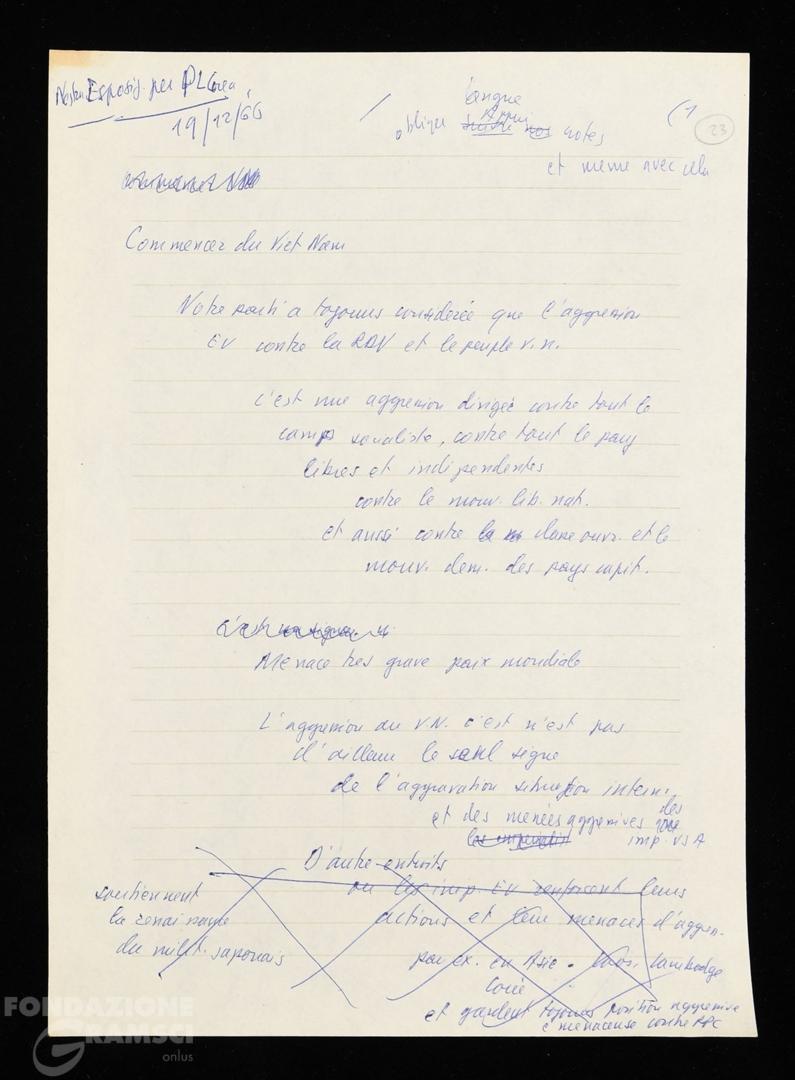 Esposiz. per PL Corea
19/12/66
langue
oblique notes
et meme avec cela
(1
23
Commencer du Viet Nam
Notre parti a toujours considerée que l'aggresion
EU contre la RDV et le peuple v.n.
c'est une aggresion dirigée contre tout le
camp socialiste, contre tout le pays
libres et indipendentes
contre le mouv. lib. nat.
et aussi contre la classe ouvr. et le
mouv. dem. des pays capit.
c'est
Menace tres grave paix mondiale
L'aggresion au V.N. c'est n'est pas
d'ailleur le seul signe
de l'aggravation situation intern.
et des menées aggresives des
imp. USA
D'autre entroits
ou les imp. EU renforcent leurs
actions et leur menaces d'aggres.
par ex. en Asie. Laos. Cambodge
Corée
et gardent toujours position aggresive
e menaceuse contre RPC
soutiennent
la renaissance
du milit. japonais
FONDAZIONE
GRAMSCI
onlus